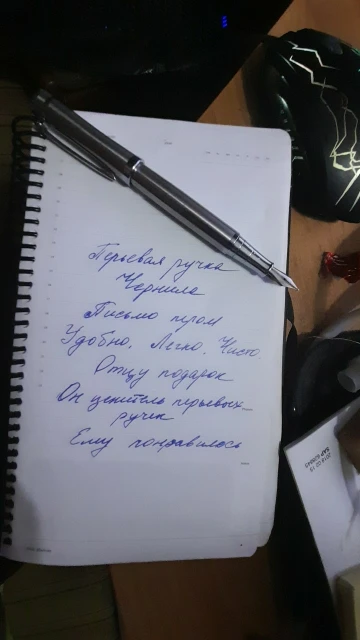 Перьевая ручка
Чернила
Письмо пером
Удобно. Легко. Чисто.
Отцу подарок
Он ценитель перьевых
ручек
Ему понравилось